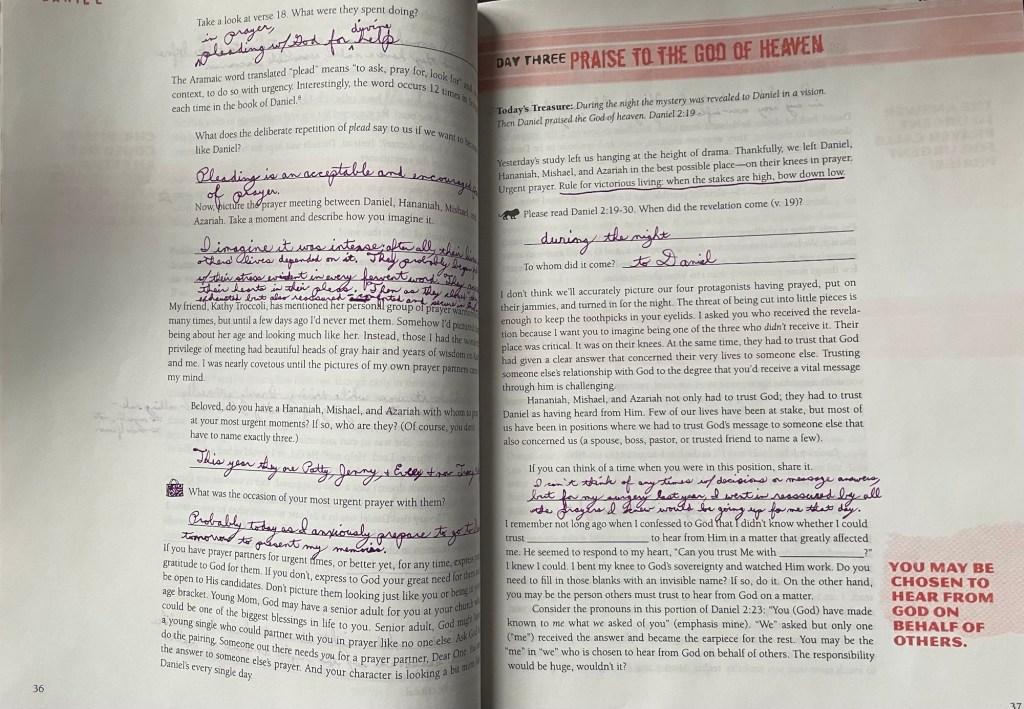 DANIEL
Take a look at verse 18. What were they spent doing?
in prayer,
pleading w/ God for divine help
The Aramaic word translated "plead" means "to ask, pray for, look for"
context, to do so with urgency. Interestingly, the word occurs 12 times in
each time in the book of Daniel.
What does the deliberate repetition of plead say to us if we want to
like Daniel?
Pleading is an acceptable and encouraged
of prayer.
Now, picture the prayer meeting between Daniel, Hananiah, Mishael
Azariah. Take a moment and describe how you imagine it.
I imagine it was intense; after all, their
others' lives depended on it. They probably
w/ their stress evident in every fervent word. They
their hearts in their pleas. Then as they
exhausted but also reassured and secure in
My friend, Kathy Troccoli, has mentioned her personal group of prayer warriors
many times, but until a few days ago I'd never met them. Somehow I'd pictured
being about her age and looking much like her. Instead, those I had the
privilege of meeting had beautiful heads of gray hair and years of wisdom
and me. I was nearly covetous until the pictures of my own prayer partners
my mind.
Beloved, do you have a Hananiah, Mishael, and Azariah with whom
at your most urgent moments? If so, who are they? (Of course, you don't
have to name exactly three.)
This year they are Patty, Jenny, + + now
What was the occasion of your most urgent prayer with them?
Probably today as I anxiously prepare to go to
tomorrow to present my memories.
If you have prayer partners for urgent times, or better yet, for any time, express
gratitude to God for them. If you don't, express to God your great need for them
be open to His candidates. Don't picture them looking just like you or being
age bracket. Young Mom, God may have a senior adult for you at your church
could be one of the biggest blessings in life to you. Senior adult, God might
a young single who could partner with you in prayer like no one else. Ask God
do the pairing. Someone out there needs you for a prayer partner, Dear One.
the answer to someone else's prayer. And your character is looking a bit more
Daniel's every single day.
36
DAY THREE PRAISE TO THE GOD OF HEAVEN
Today's Treasure: During the night the mystery was revealed to Daniel in a vision.
Then Daniel praised the God of heaven. Daniel 2:19
Yesterday's study left us hanging at the height of drama. Thankfully, we left Daniel,
Hananiah, Mishael, and Azariah in the best possible place—on their knees in prayer.
Urgent prayer. Rule for victorious living: when the stakes are high, bow down low.
Please read Daniel 2:19-30. When did the revelation come (v. 19)?
during the night
To whom did it come? to Daniel
I don't think we'll accurately picture our four protagonists having prayed, put on
their jammies, and turned in for the night. The threat of being cut into little pieces is
enough to keep the toothpicks in your eyelids. I asked you who received the revela-
tion because I want you to imagine being one of the three who didn't receive it. Their
place was critical. It was on their knees. At the same time, they had to trust that God
had given a clear answer that concerned their very lives to someone else. Trusting
someone else's relationship with God to the degree that you'd receive a vital message
through him is challenging.
Hananiah, Mishael, and Azariah not only had to trust God; they had to trust
Daniel as having heard from Him. Few of our lives have been at stake, but most of
us have been in positions where we had to trust God's message to someone else that
also concerned us (a spouse, boss, pastor, or trusted friend to name a few).
If you can think of a time when you were in this position, share it.
I can't think of any times w/ decisions or message answers,
but for my surgery last year, I went in reassured by all
the prayers I knew would be going up for me that day.
I remember not long ago when I confessed to God that I didn't know whether I could
trust ____________________ to hear from Him in a matter that greatly affected
me. He seemed to respond to my heart, "Can you trust Me with ______________?"
I knew I could. I bent my knee to God's sovereignty and watched Him work. Do you
need to fill in those blanks with an invisible name? If so, do it. On the other hand,
you may be the person others must trust to hear from God on a matter.
Consider the pronouns in this portion of Daniel 2:23: "You (God) have made
known to me what we asked of you" (emphasis mine). "We" asked but only one
("me") received the answer and became the earpiece for the rest. You may be the
"me" in "we" who is chosen to hear from God on behalf of others. The responsibility
would be huge, wouldn't it?
YOU MAY BE
CHOSEN TO
HEAR FROM
GOD ON
BEHALF OF
OTHERS.
37